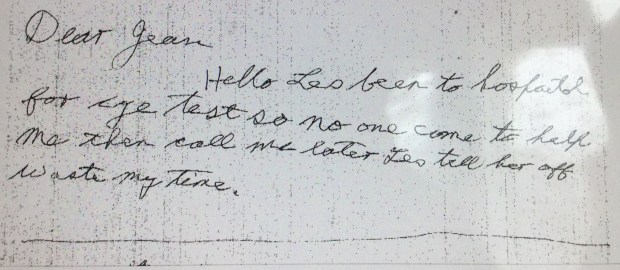 Dear Jean
Hello Les been to hospatol
for eye test so no one come to help
me then call me later Les tell her off
waste my time.